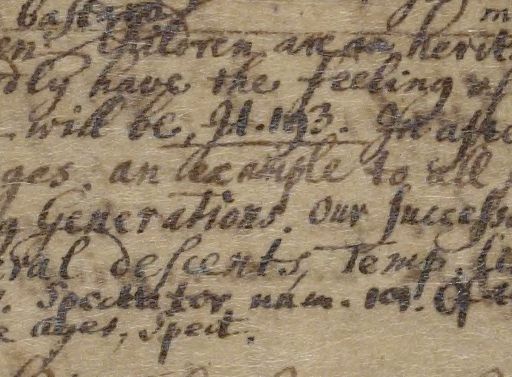 bastard
en. Children are an herit
dly have the feeling of
will be, Id. 193. In afte
ges. an example to all
g Generations. Our Success
eral descents, Temp.
Spectator num. 101. Of
e ages, Spect.